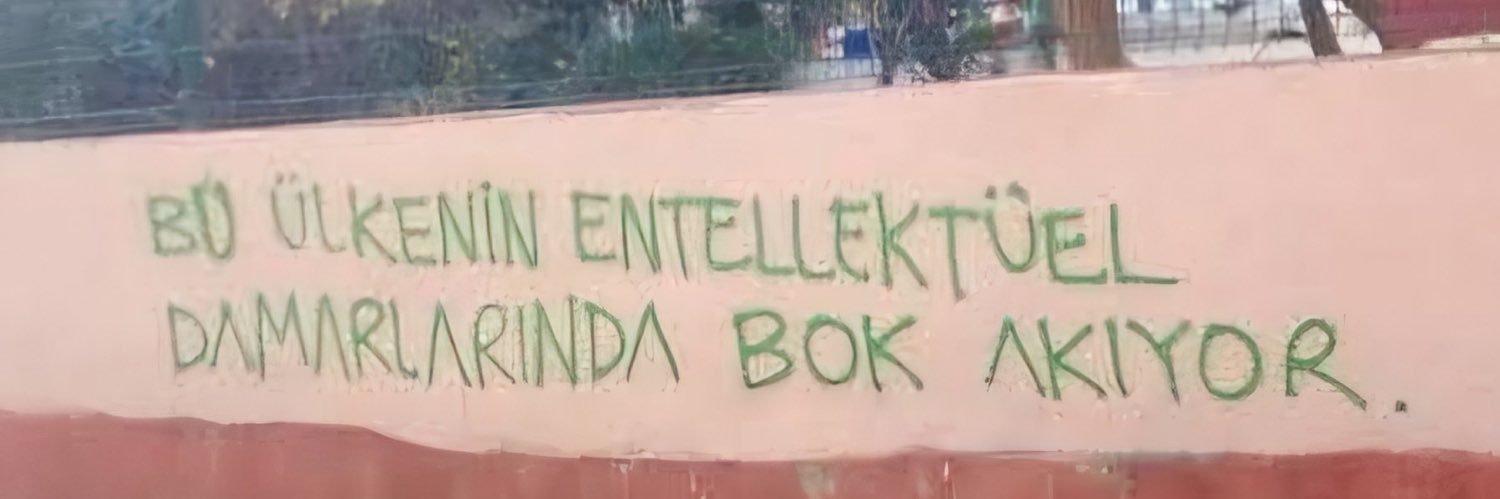 BU ÜLKENİN ENTELLEKTÜEL
DAMARLARINDA BOK AKIYOR.